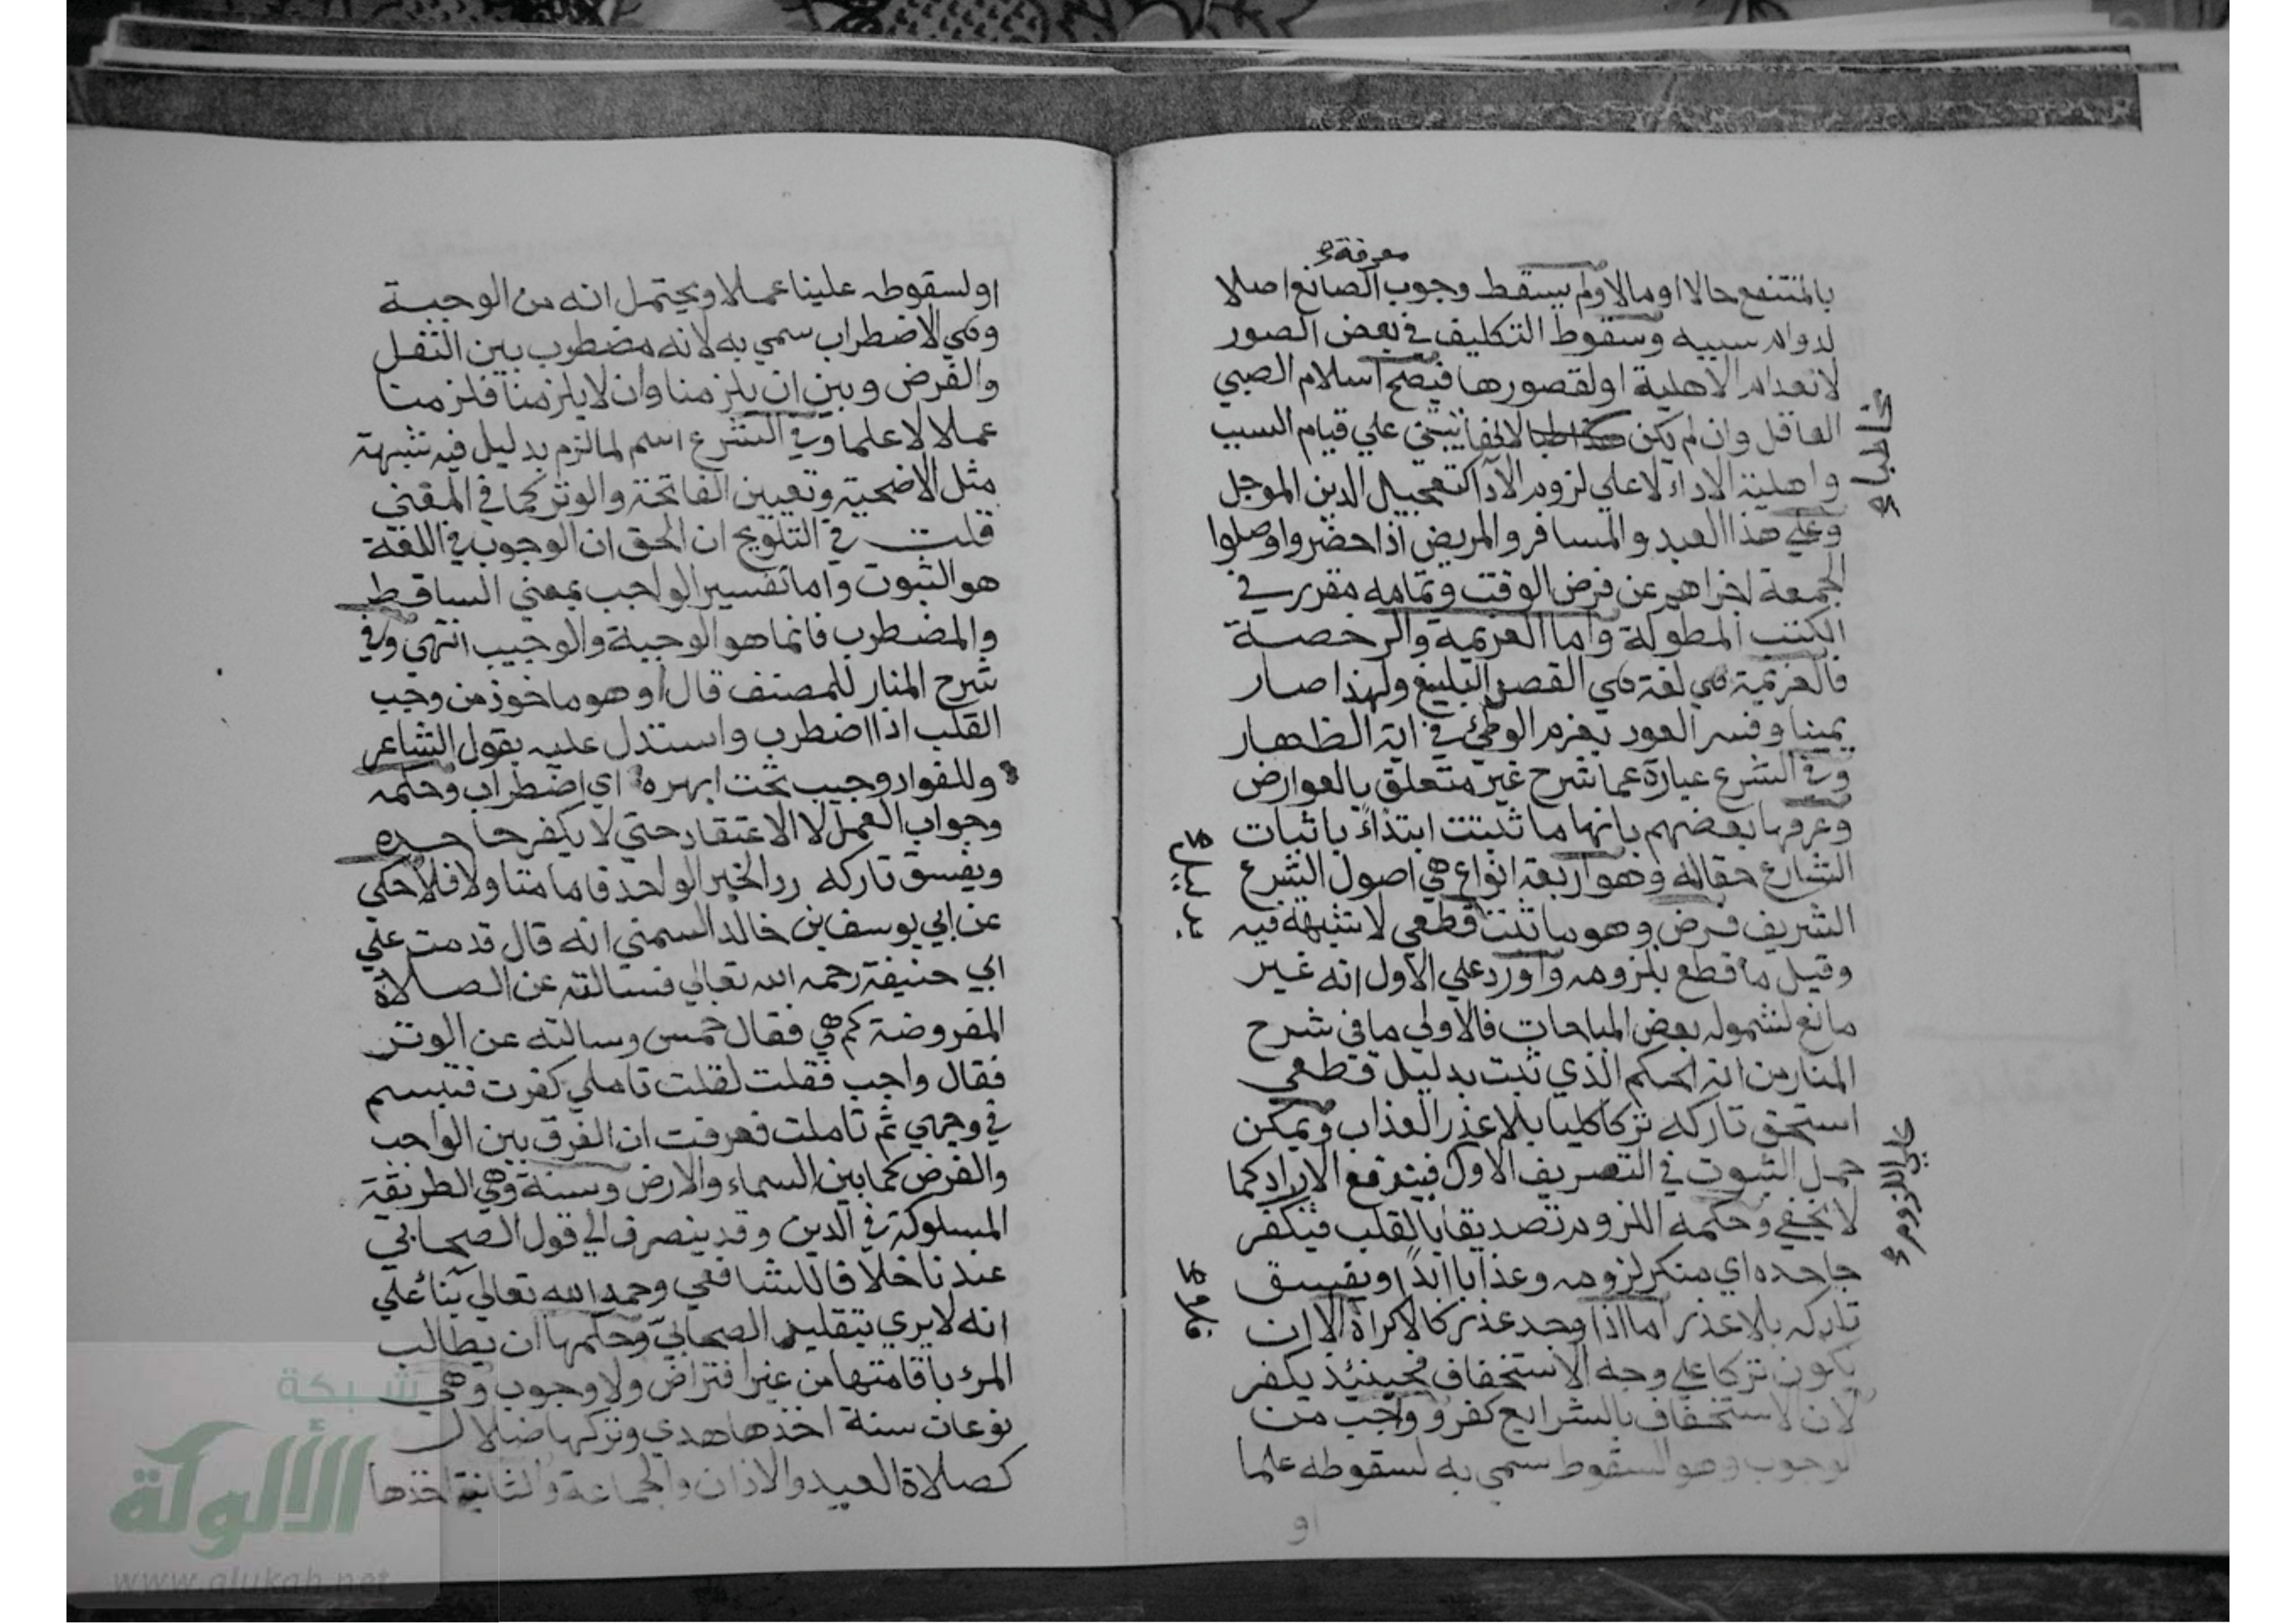 معرفة
بالمنتفع حالا او مالا ولم يسقط وجوب الصانع اصلا
لدوام سببه وسقوط التكليف في بعض الصور
لانعدام الاهلية او لقصورها فيصح اسلام الصبي
العاقل وان لم يكن لانها يبتني علي قيام السبب
مخاطبا
واهلية الاداء لا علي لزوم الاداكتعجيل الدين الموجل
وعلي هذا العبد والمسافر والمريض اذا حضروا وصلوا
الجمعة اجزاهم عن فرض الوقت وتمامه مقرر في
الكتب المطولة واما العزيمة والرخصة
فالعزيمة هي لغة هي القصد البليغ ولهذا صار
يمينا وفسر العود بعزم الوطئ في اية الظهار
وفي الشرع عبارة عما شرح غير متعلق بالعوارض
وعرفها بعضهم بانها ما ثبتت ابتداءً باثبات
الشارع حقاله وهو اربعة انواع هي اصول الشرع
الشريف فرض وهو ما ثبت قطعي لا شبهة فيه
بدليل
وقيل ما قطع بلزومه واورد علي الاول انه غير
مانع لشموله بعض المباحات فالاولي ما في شرح
المنار من انه الحكم الذي ثبت بدليل قطعي
استحق تاركه تركا كليا بلا عذر العذاب ويمكن
حمل الثبوت في التعريف الاول فيندفع الايراد كما
علي اللزوم
لا يخفي وحكمه اللزوم تصديقا بالقلب فيكفر
جاحده اي منكر لزومه وعذابا ابدًا ويفسق
تاركه بلا عذر اما اذا وجد عذر كالاكراه الا ان
فلا
يكون تركا علي وجه الاستخفاف فحينئذ يكفر
لان لاستخفاف بالشرايع كفر وواجب من
الوجوب وهو السقوط سمي به لسقوطه علما
او
او لسقوطه علينا عملا ويحتمل انه من الوجبة
وهي الاضطراب سمي به لانه مضطرب بين النفل
والفرض وبين ان يلزمنا وان لا يلزمنا فلزمنا
عملا لا علما وفي الشرع اسم لما لزم بدليل فيه شبهة
مثل الاضحية وتعيين الفاتحة والوتر كما في المغني
قلت في التلويح ان الحق ان الوجوب في اللغة
هو الثبوت واما تفسير الواجب بمعني الساقط
والمضطرب فانما هو الوجبة والوجيب انتهي وفي
شرح المنار للمصنف قال او هو ماخوذ من وجب
القلب اذا اضطرب واستدل عليه بقول الشاعر
وللفواد وجيب تحت ابهره اي اضطراب وحكمه
وجواب العمل لا الاعتقاد حتي لا يكفر جاحده
ويفسق تاركه رد الخبر الواحد فاما متاولا فلا حكي
عن ابي يوسف بن خالد السمتي انه قال قدمت علي
ابي حنيفة رحمه الله تعالي فسالته عن الصلاة
المفروضة كم هي فقال خمس وسالته عن الوتر
فقال واجب فقلت لقلت تاملي كفرت فتبسم
في وجهي ثم تاملت فعرفت ان الفرق بين الواجب
والفرض كما بين السماء والارض وسنة وهي الطريقة
المسلوكة في الدين وقد ينصرف الي قول الصحابي
عندنا خلافا للشافعي رحمه الله تعالي بناءً علي
انه لا يري بتقليد الصحابي وحكمها ان يطالب
المرء باقامتها من غير افتراض ولا وجوب وهي
نوعان سنة اخذها هدي وتركها ضلال
كصلاة العيد والاذان والجماعة والثانية اخذها
شبكة
الألوكة
www.alukah.net